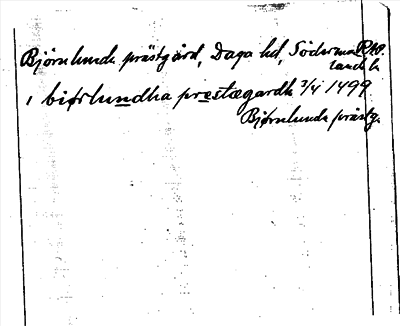 Björnlunda prästgård, Daga hd, Söderman
land
i biørlundha prestægardh 3/4 1499
Björnlunda prästg.